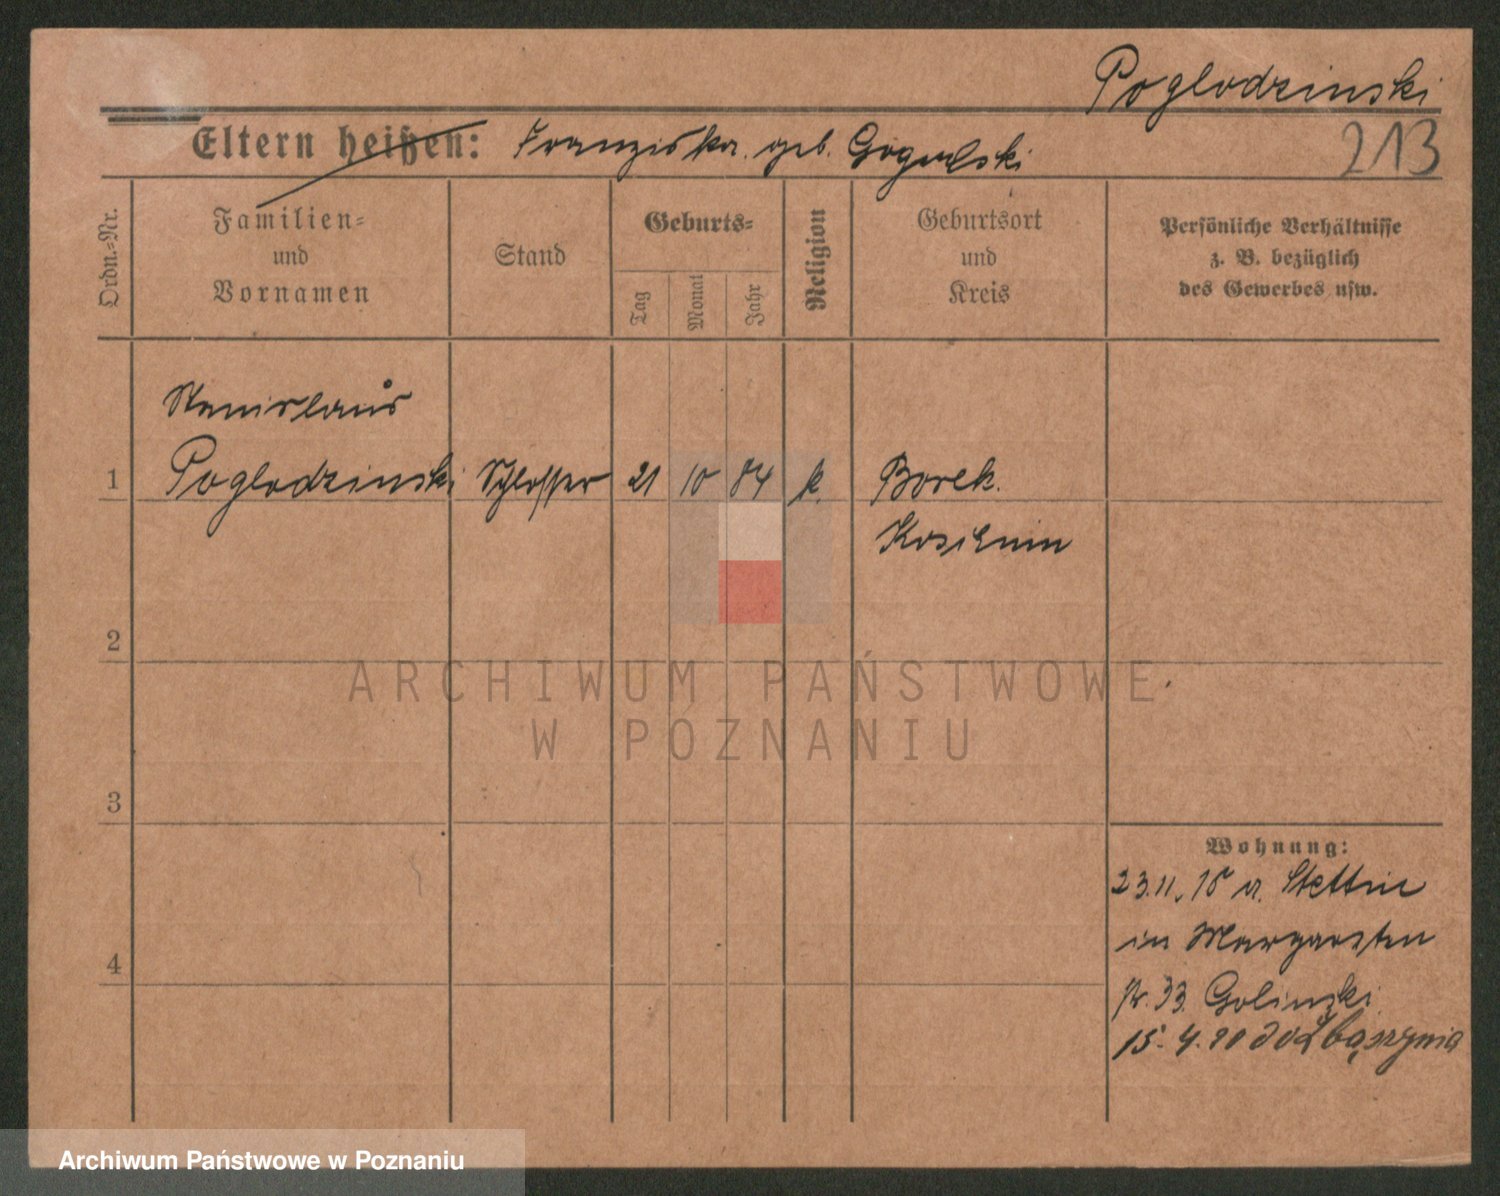 Poglodzinski
Eltern heißen: Franziska geb.
213
Ordn.-Nr.
Familien-
und
Vornamen
Stand
Geburts-
Tag
Monat
Jahr
Religion
Geburtsort
und
Kreis
Persönliche Verhältnisse
z. B. bezüglich
des Gewerbes usw.
Stanislaus
1 Poglodzinski Schlosser 21 10 84 k. Borek.
Koschmin
2
3
4
Wohnung:
23.11. Stettin
in Margareten
33 Golinski
15. 4. 20 do Zbąszynia
ARCHIWUM PAŃSTWOWE
W POZNANIU
Archiwum Państwowe w Poznaniu